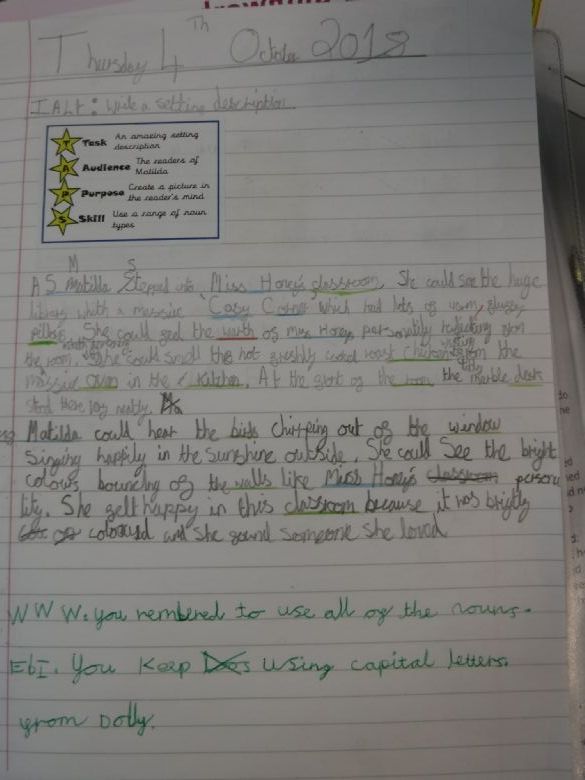 Thursday 4th October 2018
IALt: Write a setting description
Task An amazing setting description
Audience The readers of Matilda
Purpose Create a picture in the reader's mind
Skill Use a range of noun types
M S
AS Matilda Stepped into Miss Honey's classroom, She could see the huge
library which a massive Cosy Corner which had lots of warm,
She could feel the warth of miss Honey personality reflecting from
the room. She could smell the hot freshly cooked roast from the
massive oven in the Kitchen. At the front of the room the marble desk
stood there very neatly.
Matilda could hear the birds chirpping out of the window
Singing happily in the Sunshine outside. She could See the bright
colours bouncing of the walls like Miss Honey's classroom persona
lity. She felt happy in this classroom because it was brightly
coloured and She found Someone She loved
WWW. you rembered to use all of the nouns.
EbI. You Keep Using capital letters.
from Dolly.